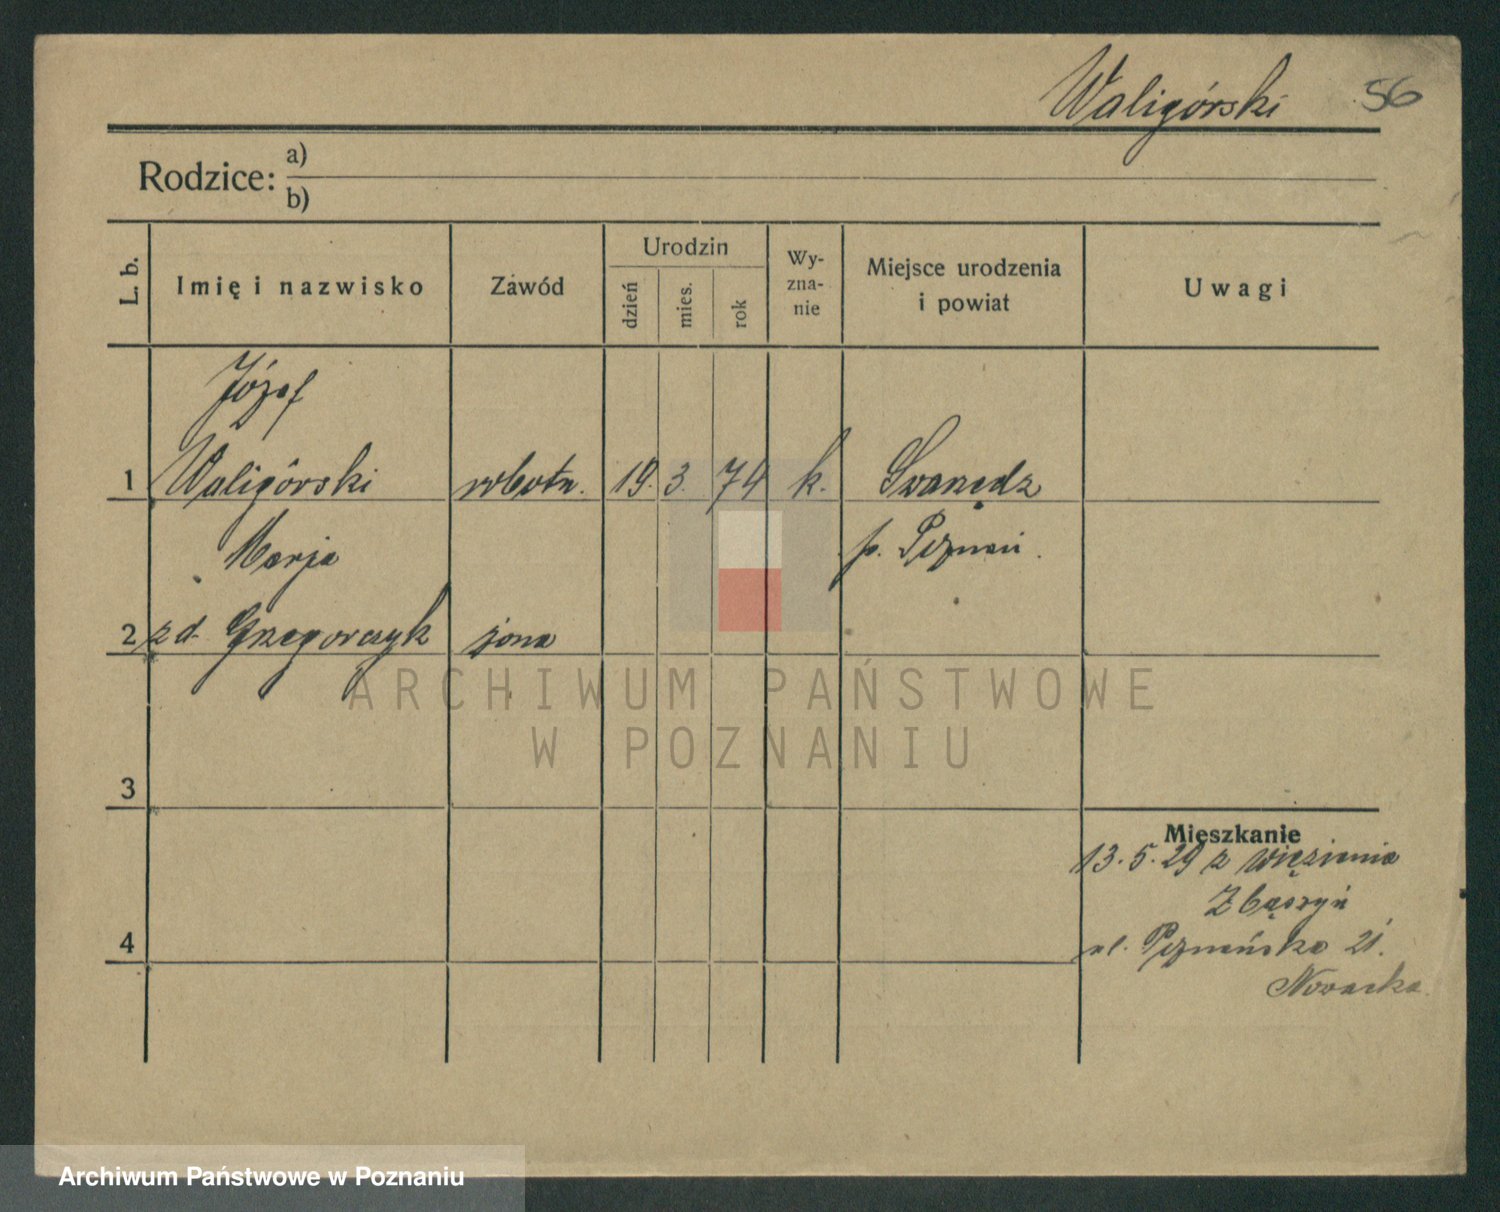 Waligórski 56
Rodzice: a)
b)
L. b. Imię i nazwisko Zawód Urodzin dzień mies. rok Wy-zna-nie Miejsce urodzenia i powiat Uwagi
Józef
1 Waligórski robotn. 19. 3. 74 k. Swarzędz
Marja p. Poznań.
2 z d. Grzegorczyk żona
ARCHIWUM PAŃSTWOWE
W POZNANIU
3
Mieszkanie
13.5.29 z więzienia
Zbąszyń
4 ul. Poznańska 21.
Nowacka.
Archiwum Państwowe w Poznaniu